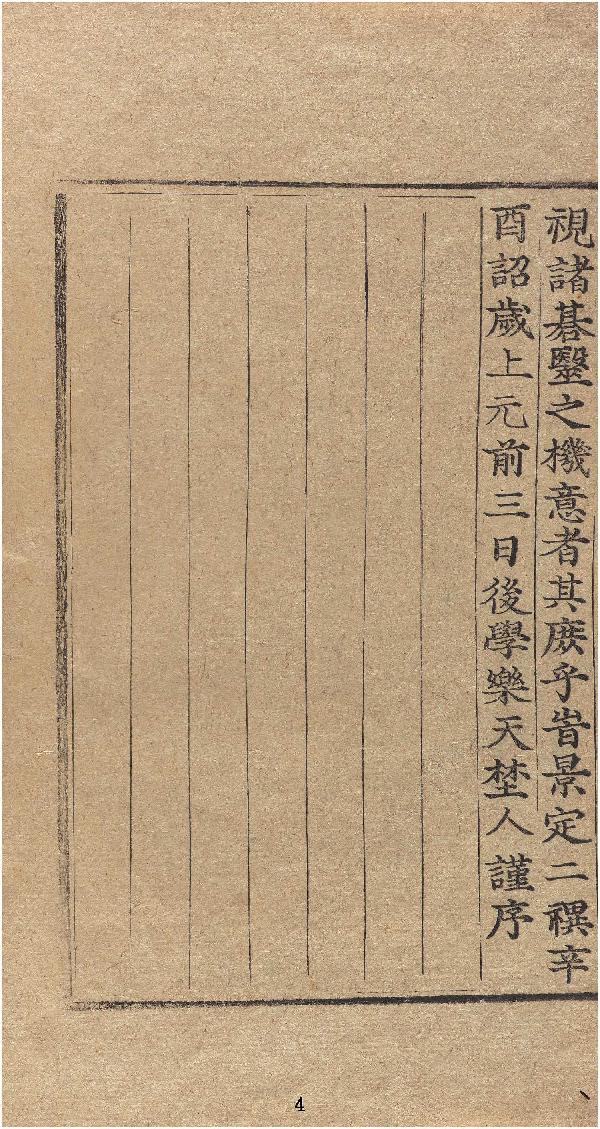 視諸碁毉之機意者其庶乎旹景定二禩辛
酉詔歲上元前三日後學樂天埜人謹序
4